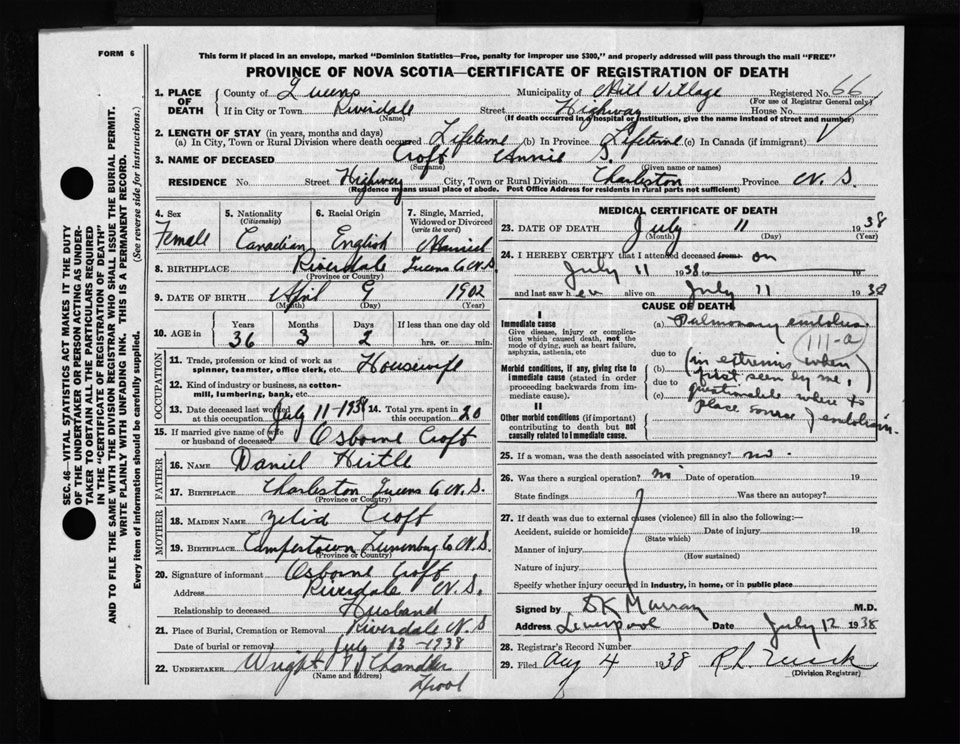 FORM 6
This form if placed in an envelope, marked "Dominion Statistics—Free, penalty for improper use $300," and properly addressed will pass through the mail "FREE"
PROVINCE OF NOVA SCOTIA—CERTIFICATE OF REGISTRATION OF DEATH
SEC. 46—VITAL STATISTICS ACT MAKES IT THE DUTY
OF THE UNDERTAKER OR PERSON ACTING AS UNDER-
TAKER TO OBTAIN ALL THE PARTICULARS REQUIRED
IN THE "CERTIFICATE OF REGISTRATION OF DEATH"
AND TO FILE THE SAME WITH THE DIVISION REGISTRAR WHO SHALL ISSUE THE BURIAL PERMIT.
WRITE PLAINLY WITH UNFADING INK. THIS IS A PERMANENT RECORD.
Every item of information should be carefully supplied. (See reverse side for instructions.)
1. PLACE OF DEATH County of Queens Municipality of Mill Village Registered No. 66
(For use of Registrar General only)
If in City or Town Riversdale Street Highway House No.
(Name) (If death occurred in a hospital or institution, give the name instead of street and number)
2. LENGTH OF STAY (in years, months and days)
a) In City, Town or Rural Division where death occurred Lifetime (b) In Province Lifetime (c) In Canada (if immigrant)
3. NAME OF DECEASED Croft Annie S.
(Surname) (Given name or names)
RESIDENCE No. Street Highway City, Town or Rural Division Charleston Province N. S.
(Residence means usual place of abode. Post Office Address for residents in rural parts not sufficient)
4. Sex Female
5. Nationality (Citizenship) Canadian
6. Racial Origin English
7. Single, Married, Widowed or Divorced (write the word) Married
8. BIRTHPLACE Riversdale Queens Co N.S.
(Province or Country)
9. DATE OF BIRTH April 9 1902
(Month) (Day) (Year)
10. AGE in Years 36 Months 3 Days 2 If less than one day old hrs. or min.
OCCUPATION
11. Trade, profession or kind of work as spinner, teamster, office clerk, etc. Housewife
12. Kind of industry or business, as cotton-mill, lumbering, bank, etc.
13. Date deceased last worked at this occupation July 11-1938 14. Total yrs. spent in this occupation 20
15. If married give name of wife or husband of deceased Osborne Croft
FATHER
16. NAME Daniel Hirtle
17. BIRTHPLACE Charleston Queens Co N.S.
(Province or Country)
MOTHER
18. MAIDEN NAME Croft
19. BIRTHPLACE Lunenburg Co N.S.
(Province or Country)
20. Signature of informant Osborne Croft
Address Riversdale N.S.
Relationship to deceased Husband
21. Place of Burial, Cremation or Removal Riversdale N.S
Date of burial or removal July 13-1938
22. UNDERTAKER Wright Chandler
(Name and Address) L'pool
MEDICAL CERTIFICATE OF DEATH
23. DATE OF DEATH July 11 1938
(Month) (Day) (Year)
24. I HEREBY CERTIFY that I attended deceased from on
July 11 1938 to 19
and last saw h er alive on July 11 1938
CAUSE OF DEATH
I
Immediate cause
Give disease, injury or complication which caused death, not the mode of dying, such as heart failure, asphyxia, asthenia, etc
(a) Pulmonary embolus.
111-a
due to
Morbid conditions, if any, giving rise to immediate cause (stated in order proceeding backwards from immediate cause).
(b) (in extremis when
first seen by me,
due to
(c) questionable where to
place source of embolism.
II
Other morbid conditions (if important) contributing to death but not causally related to immediate cause.
25. If a woman, was the death associated with pregnancy? no.
26. Was there a surgical operation? no Date of operation 19
State findings Was there an autopsy?
27. If death was due to external causes (violence) fill in also the following:—
Accident, suicide or homicide? Date of injury 19
(State which)
Manner of injury
(How sustained)
Nature of injury
Specify whether injury occurred in industry, in home, or in public place
Signed by D K Murray M.D.
Address Liverpool Date July 12 1938
28. Registrar's Record Number
29. Filed Aug 4 1938 R. L.
(Division Registrar)